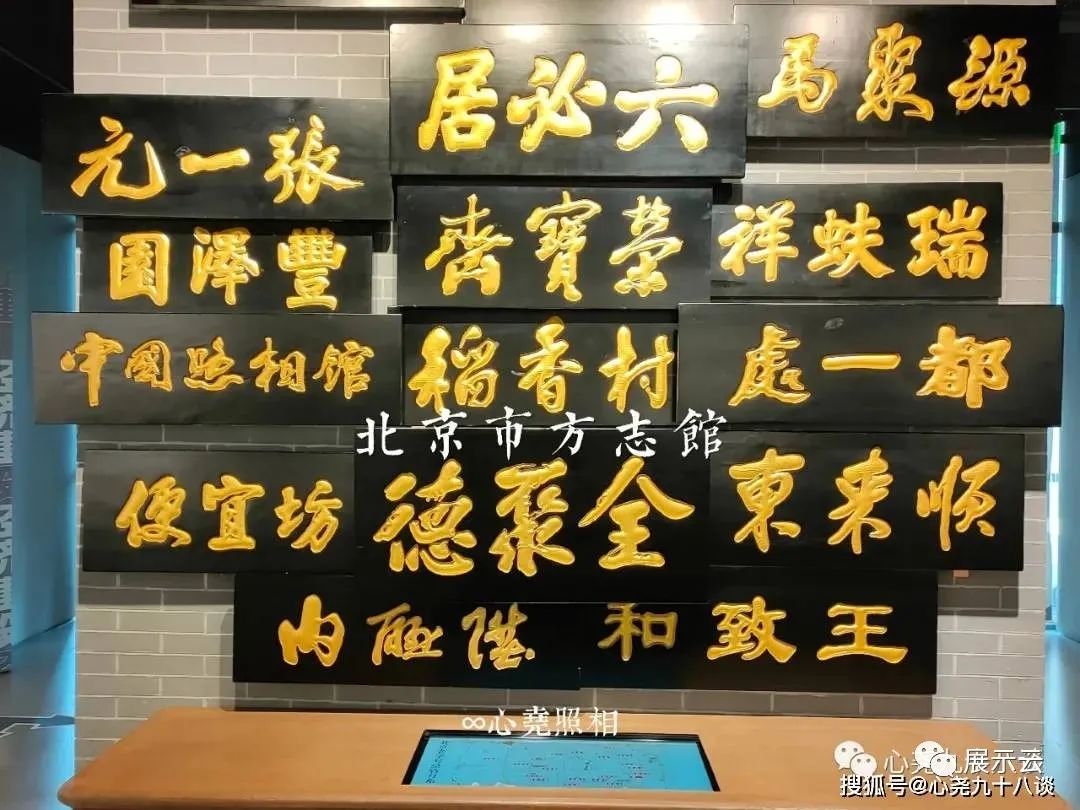 馬聚源
六必居
張一元
瑞蚨祥
榮寶齋
豐澤園
中國照相馆
稻香村
都一處
北京市方志館
便宜坊
全聚德
東来順
内聯陞
王致和
∞心堯照相
搜狐号@心尧九十八谈